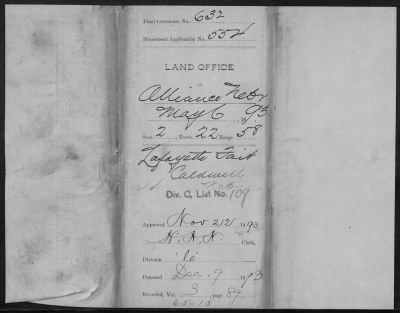 Final Certificate No. 632
Homestead Application No. 554
LAND OFFICE
Alliance Nebr
May 6 93
Sect. 2, Town. 22 Range 58
Lafayette Tait
Caldwell
Div. C, List No. 109
Approved Nov 22 1893
Clerk,
Division
Patented Dec. 9 1893
Recorded, Vol. 3 page 89